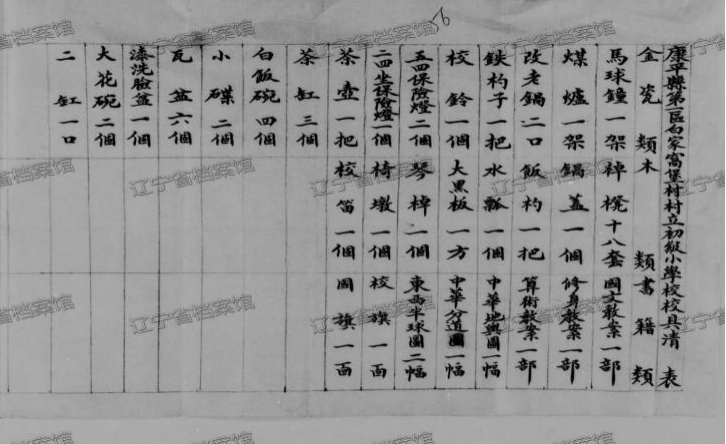 56
康平縣第一區向家窩堡村村立初級小學校校具清表
金瓷類 木類 書籍類
馬球鐘一架 棹櫈十八套 國文教案一部
煤爐一架 鍋蓋一個 修身教案一部
改老鍋二口 飯杓一把 算術教案一部
鉄杓子一把 水瓢一個 中華地輿圖一幅
校鈴一個 大黑板一方 中華分道圖一幅
五四保險燈二個 琴棹一個 東西半球圖二幅
二四坐保險燈一個 椅墩一個 校旗一面
茶壺一把 校笛一個 國旗一面
茶缸三個
白飯碗四個
小碟二個
瓦盆六個
漆洗臉盆一個
大花碗二個
二缸一口
辽宁省档案馆